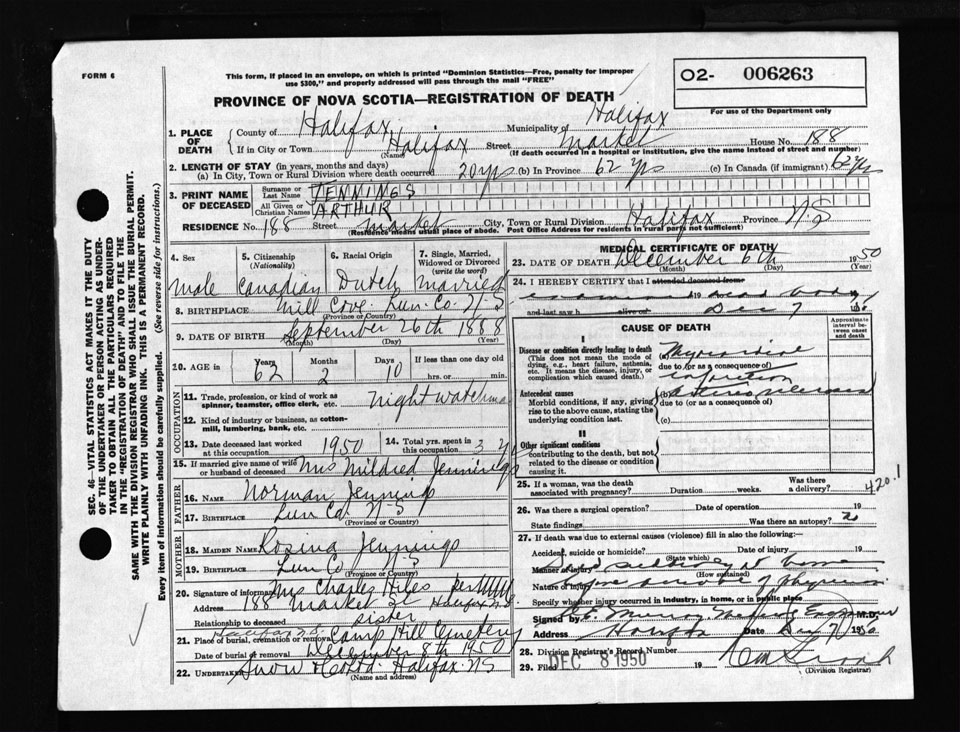 FORM 6
This form, if placed in an envelope, on which is printed "Dominion Statistics—Free, penalty for improper
use $300," and properly addressed will pass through the mail "FREE"
O2- 006263
For use of the Department only
PROVINCE OF NOVA SCOTIA—REGISTRATION OF DEATH
1. PLACE OF DEATH { County of Halifax Municipality of Halifax
If in City or Town Halifax Street Market House No. 188
(Name) (If death occurred in a hospital or institution, give the name instead of street and number)
2. LENGTH OF STAY (in years, months and days)
(a) In City, Town or Rural Division where death occurred 20 yrs (b) In Province 62 yrs (c) In Canada (if immigrant) 62 yrs
3. PRINT NAME OF DECEASED { Surname or Last Name JENNINGS
All Given or Christian Names ARTHUR
RESIDENCE No. 188 Street Market City, Town or Rural Division Halifax Province N.S
(Residence means usual place of abode. Post Office Address for residents in rural parts not sufficient)
4. Sex 5. Citizenship (Nationality) 6. Racial Origin 7. Single, Married, Widowed or Divorced (write the word)
Male Canadian Dutch Married
8. BIRTHPLACE Mill Cove. Lun. Co. N-S
(Province or Country)
9. DATE OF BIRTH September 26th 1888
(Month) (Day) (Year)
20. AGE in { Years Months Days If less than one day old
62 2 10 hrs. or min.
OCCUPATION
11. Trade, profession, or kind of work as spinner, teamster, office clerk, etc. Night watchma
12. Kind of industry or business, as cotton-mill, lumbering, bank, etc.
13. Date deceased last worked at this occupation 1950 14. Total yrs. spent in this occupation 3 y
15. If married give name of wife or husband of deceased Mrs Mildred Jennings
FATHER
16. Name Norman Jennings
17. BIRTHPLACE Lun Co. N-S
(Province or Country)
MOTHER
18. MAIDEN NAME Rosina Jennings
19. BIRTHPLACE Lun Co N-S
(Province or Country)
20. Signature of informant Mrs Charles Hiles per
Address 188 Market St Halifax N.S
Relationship to deceased sister
21. Place of burial, cremation or removal Halifax N.S. Camp Hill Cemetery
Date of burial or removal December 8th 1950
22. UNDERTAKER Snow & Co Ltd. Halifax. NS
(Name and address)
MEDICAL CERTIFICATE OF DEATH
23. DATE OF DEATH December 6th 1950
(Month) (Day) (Year)
24. I HEREBY CERTIFY that I attended deceased from
examined 19 dead body
and last saw h alive on Dec 7
CAUSE OF DEATH
Approximate interval between onset and death
I
Disease or condition directly leading to death
(This does not mean the mode of dying, e.g., heart failure, asthenia, etc. It means the disease, injury, or complication which caused death.)
Myocardial
due to (or as a consequence of)
Infarction
Antecedent causes
Morbid conditions, if any, giving rise to the above cause, stating the underlying condition last.
(b)
due to (or as a consequence of)
(c)
II
Other significant conditions
contributing to the death, but not related to the disease or condition causing it.
25. If a woman, was the death associated with pregnancy? Duration weeks. Was there a delivery? 420.1
26. Was there a surgical operation? Date of operation 19
State findings Was there an autopsy?
27. If death was due to external causes (violence) fill in also the following:
Accident, suicide or homicide? Date of injury 19
(State which)
Manner of injury at home
(How sustained)
Nature of injury of physician
Specify whether injury occurred in industry, in home, or in public place
Signed by Medical Examiner M.D.
Address Halifax Date Dec 7 1950
28. Division Registrar's Record Number
29. Filed DEC 8 1950 19
(Division Registrar)
SEC. 46—VITAL STATISTICS ACT MAKES IT THE DUTY
OF THE UNDERTAKER OR PERSON ACTING AS UNDER-
TAKER TO OBTAIN ALL THE PARTICULARS REQUIRED
IN THE "REGISTRATION OF DEATH" AND TO FILE THE
SAME WITH THE DIVISION REGISTRAR WHO SHALL ISSUE THE BURIAL PERMIT.
WRITE PLAINLY WITH UNFADING INK. THIS IS A PERMANENT RECORD.
Every item of information should be carefully supplied. (See reverse side for instructions.)